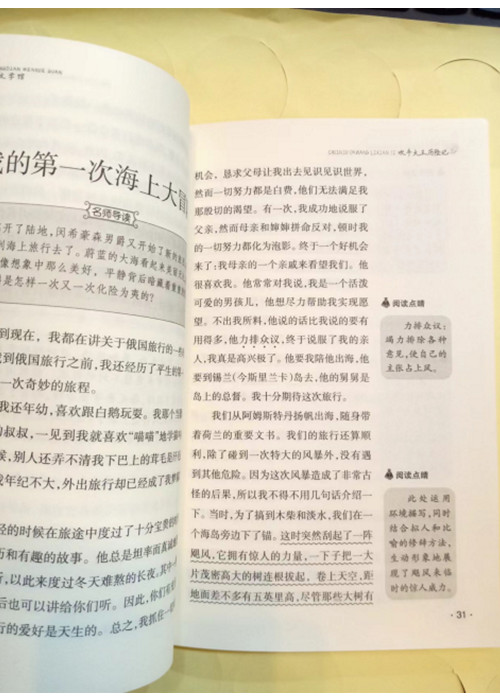 文学馆
我的第一次海上大冒
名师导读
离开了陆地，闵希豪森男爵又开始了
到海上旅行去了。蔚蓝的大海看起来
像想象中那么美好，平静背后暗藏
是怎样一次又一次化险为夷的？
到现在，我都在讲关于俄国旅行的一
到俄国旅行之前，我还经历了平生的第一
一次奇妙的旅程。
我还年幼，喜欢跟白鹅玩耍。我那个
的叔叔，一见到我就喜欢“喵喵”地学
候，别人还弄不清我下巴上的茸毛是
年纪不大，外出旅行却已经成了我梦
轻的时候在旅途中度过了十分宝贵的
历和有趣的故事。他总是坦率而真诚
听，以此来度过冬天难熬的长夜。其中
后也可以讲给你们听。因此，你们
行的爱好是天生的。总之，我抓住一
吹牛大王历险记
机会，恳求父母让我出去见识见识世界，
然而一切努力都是白费，他们无法满足我
那殷切的渴望。有一次，我成功地说服了
父亲，然而母亲和婶婶拼命反对，顿时我
的一切努力都化为泡影。终于一个好机会
来了：我母亲的一个亲戚来看望我们。他
很喜欢我。他常常对我说，我是一个活泼
可爱的男孩儿，他想尽力帮助我实现愿
望。不出我所料，他说的话比我说的要有
用得多，他力排众议，终于说服了我的亲
人，我真是高兴极了。他要我陪他出海，他
要到锡兰（今斯里兰卡）岛去，他的舅舅是
岛上的总督。我十分期待这次旅行。
我们从阿姆斯特丹扬帆出海，随身带
着荷兰的重要文书。我们的旅行还算顺
利，除了碰到一次特大的风暴外，没有遇
到其他危险。因为这次风暴造成了非常古
怪的后果，所以我不得不用几句话介绍一
下。当时，为了搞到木柴和淡水，我们在一
个海岛旁边下了锚。这时突然刮起了一阵
飓风，它拥有惊人的力量，一下子把一大
片茂密高大的树连根拔起，卷上天空，距
地面差不多有五英里高，尽管那些大树有
阅读点睛
力排众议：
竭力排除各种
意见，使自己的
主张占上风。
阅读点睛
此处运用
环境描写，同时
结合拟人和比
喻的修辞方法，
生动形象地展
现了飓风来临
时的惊人威力。
·31·